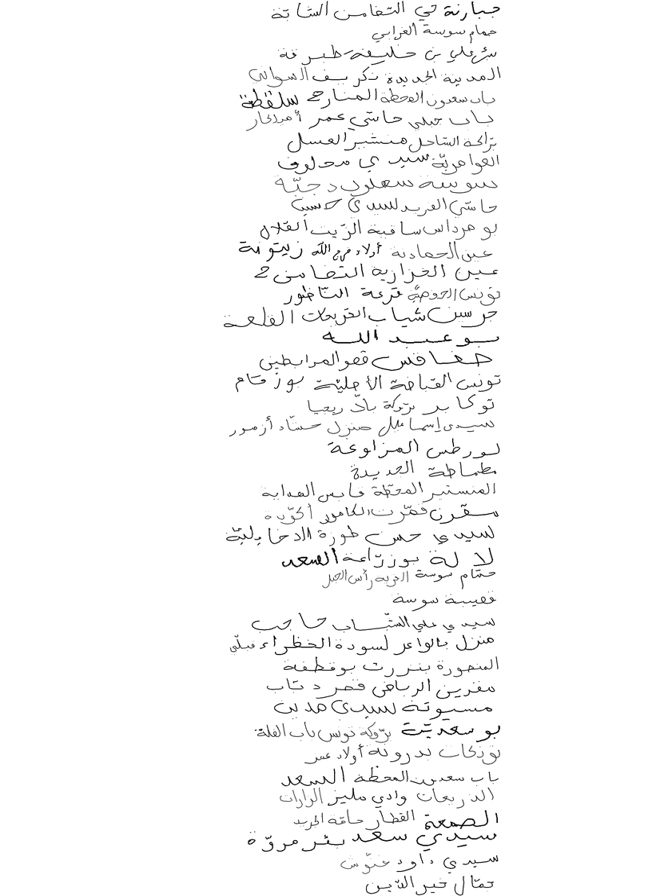 جبارنة حي التضامن الشابة
حمام سوسة الغرابي
بئر علي بن خليفة طبرقة
المدينة الجديدة زكريف السواني
باب سعدون المحطة المنارة ح سلقطة
باب جبلي حاسي عمر
براكة الساحل هنشير العسل
العوامرية سيدي مخلوف
سويسة سهلول دجبة
حاسي الفريد لسيدي حسين
بومرداس ساقية الزيت القلال
عين الحمادنة أولاد فرج الله زيتونة
عين الغزازية التضامن ح
تونس الحوضية قرعة الناظور
جرسين شباب القلعة
بوعبدالله
صفاقس قصر المرابطين
تونس القباضة الأصلية بوزقام
توكابر بروكة ريجيا
سيدي إسماعيل منزل حشاد أزمور
لورطس المزاوغة
مطماطة الجديدة
المنستير المحطة قابس الهداية
مقرن قمرت الكامور أكودة
لسيدي حسن طورة الدخايلية
لالة بوزراعة السعد
حمام سوسة الغربة رأس الجبل
قصيبة سوسة
سيدي علي الشباب حاجب
منزل بالواعر لسودة الخضراء قبلي
المنصورة بنزرت بوقطفة
مقرين الرياض قصر دباب
مسيوتة لسيدي مدين
بوسعدية بروكة تونس باب العلة
توزكات بدرونة أولاد عمر
باب سعدون المحطة السعد
الذريعات وادي مليز الزارات
الصمعة القطار حامة الجريد
سيدي سعد بئر مروة
سيدي داود عتوش
حمال خير الدين